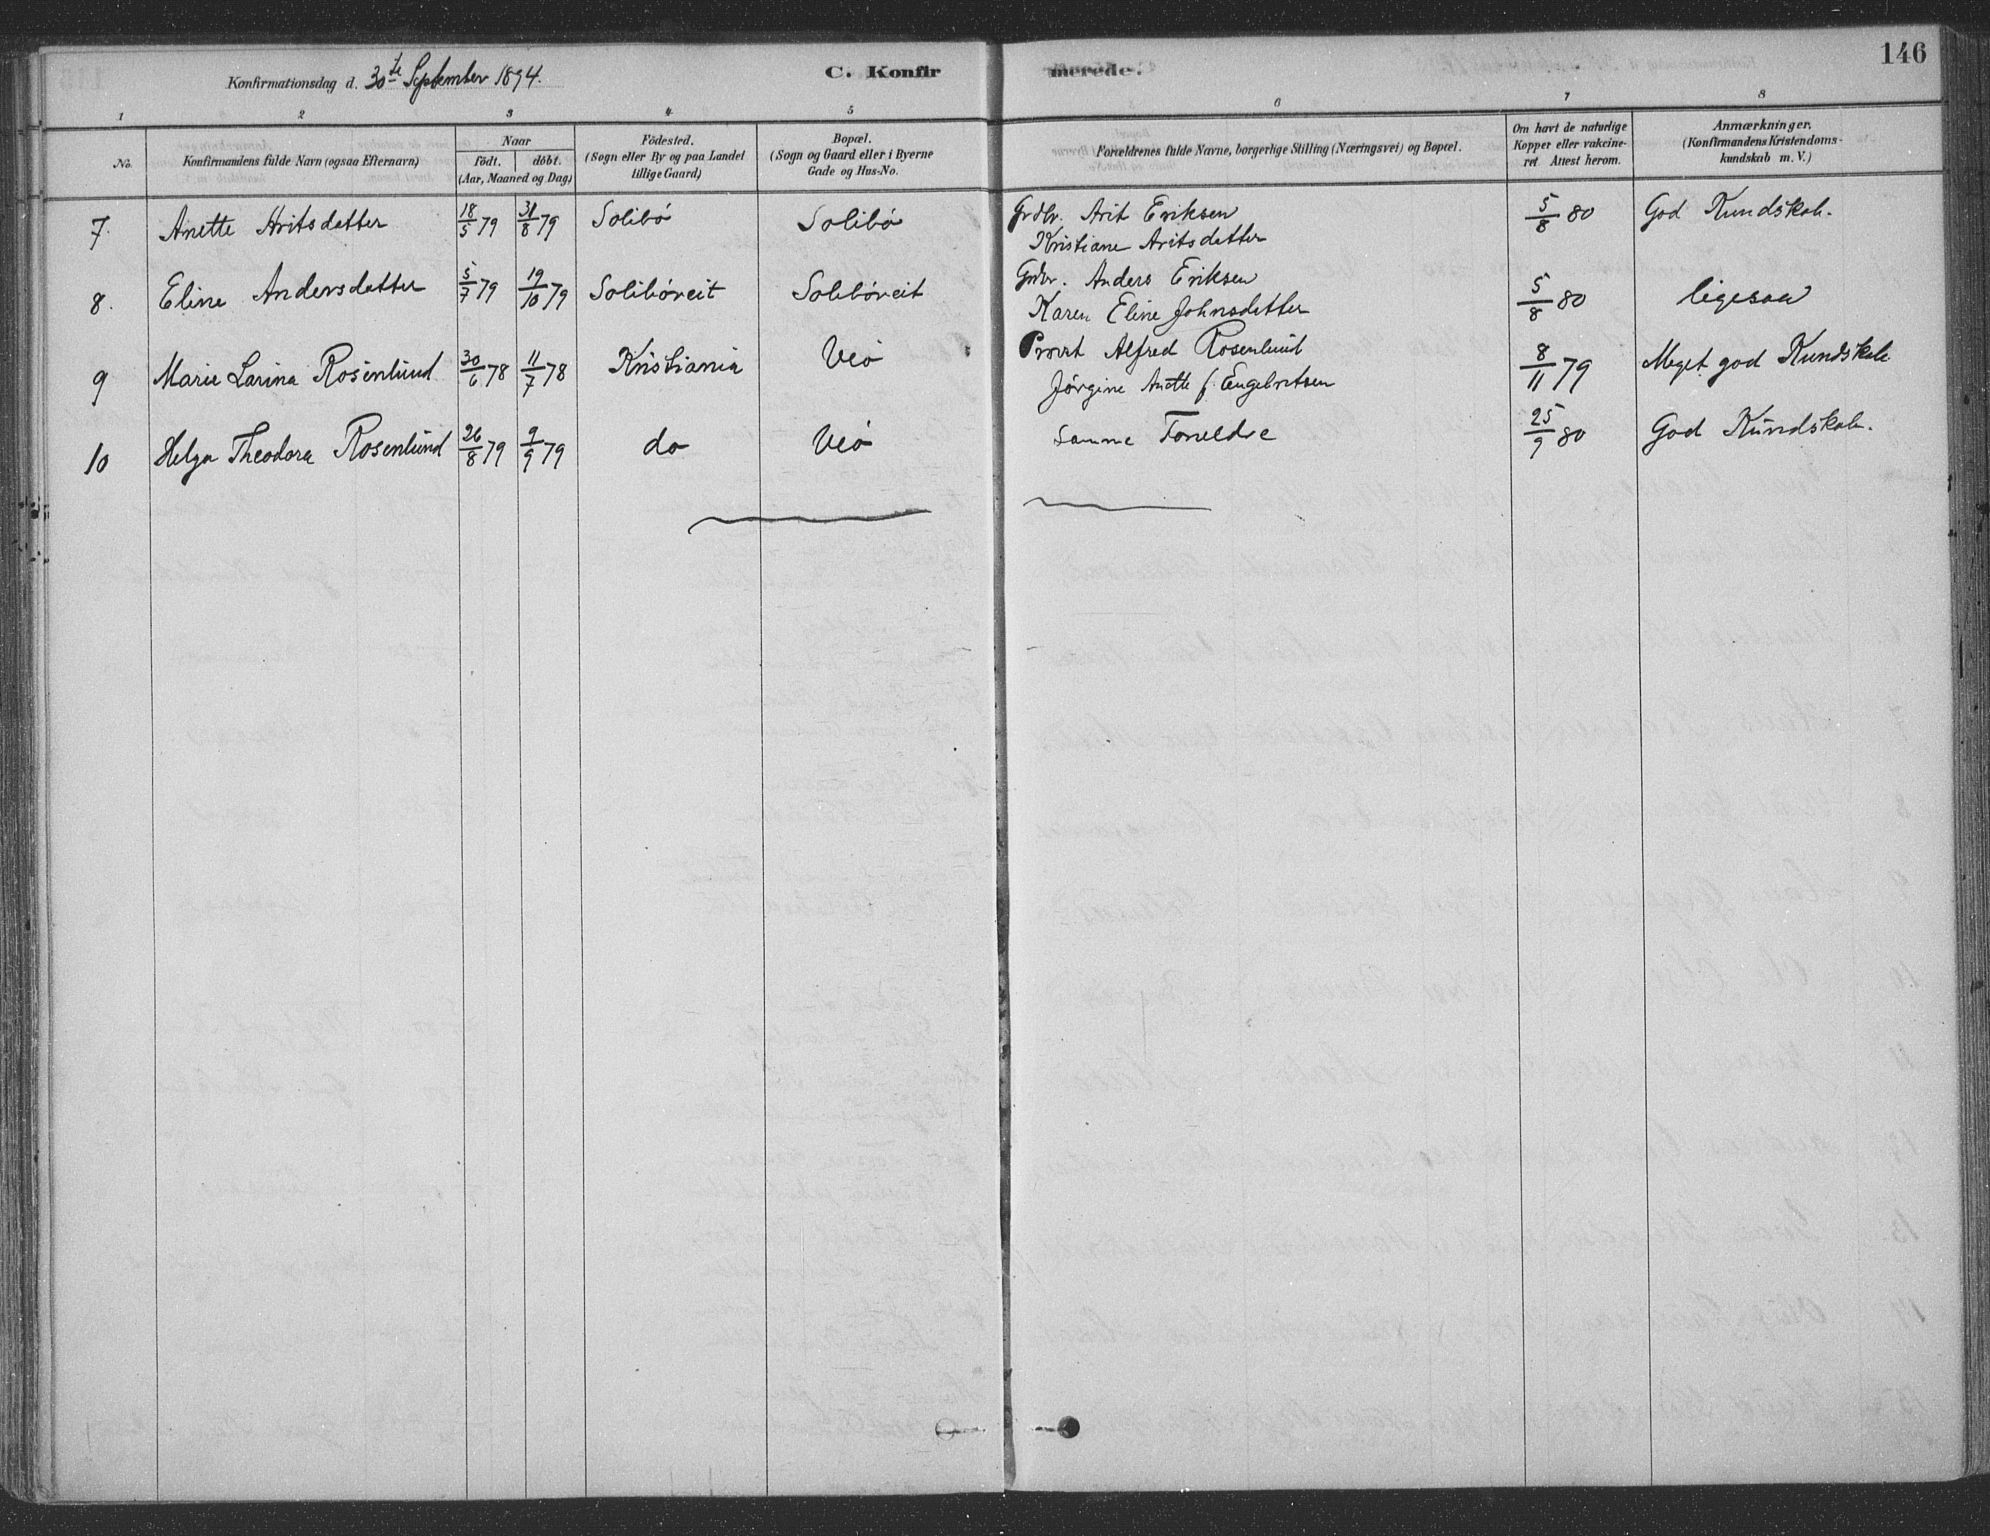 146
Konfirmationsdag d. 30te September 1894.
C. Konfirmerede.
1 2 3 4 5 6 7 8
No. Konfirmandens fulde Navn (ogsaa Efternavn) Naar födt. döbt. (Aar, Maaned og Dag) Födested. (Sogn eller By og paa Landet tillige Gaard) Bopæl. (Sogn og Gaard eller i Byerne Gade og Hus-No. Forældrenes fulde Navne, borgerlige Stilling (Næringsvei) og Bopæl. Om havt de naturlige Kopper eller vakcineret Attest herom. Anmærkninger. (Konfirmandens Kristendomskundskab m. V.)
7. Anette Aritsdatter 18/5 79 31/8 79 Solibö Solibö Grdbr. Arit Eriksen 5/8 80 God Kundskab.
Kristiane Aritsdatter
8. Eline Andersdatter 5/7 79 19/10 79 Soliböveit Soliböveit Grdbr. Anders Eriksen 5/8 80 ligesaa
Karen Eline Johnsdatter
9 Marie Larina Rosenlund 30/6 78 11/7 78 Kristiania Veö Provst Alfred Rosenlund 8/11 79 Meget god Kundskab
Jörgine Anette f. Engebretsen
10 Helga Theodora Rosenlund 26/8 79 9/9 79 do Veö Samme Foreldre 25/9 80 God Kundskab.